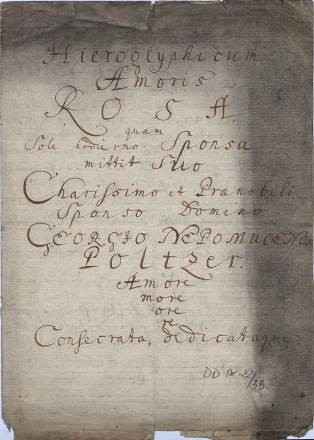 Hieroglyphicum
Amoris
ROSA.
quam
Sole hodierno Sponsa
mittit Suo
Charissimo et Prænobili
Sponso Domino
GEORGIO NEPOMUCENO
Poltzer.
Amore
more
ore
re
Consecrata, dedicataque
DD IX 22/33